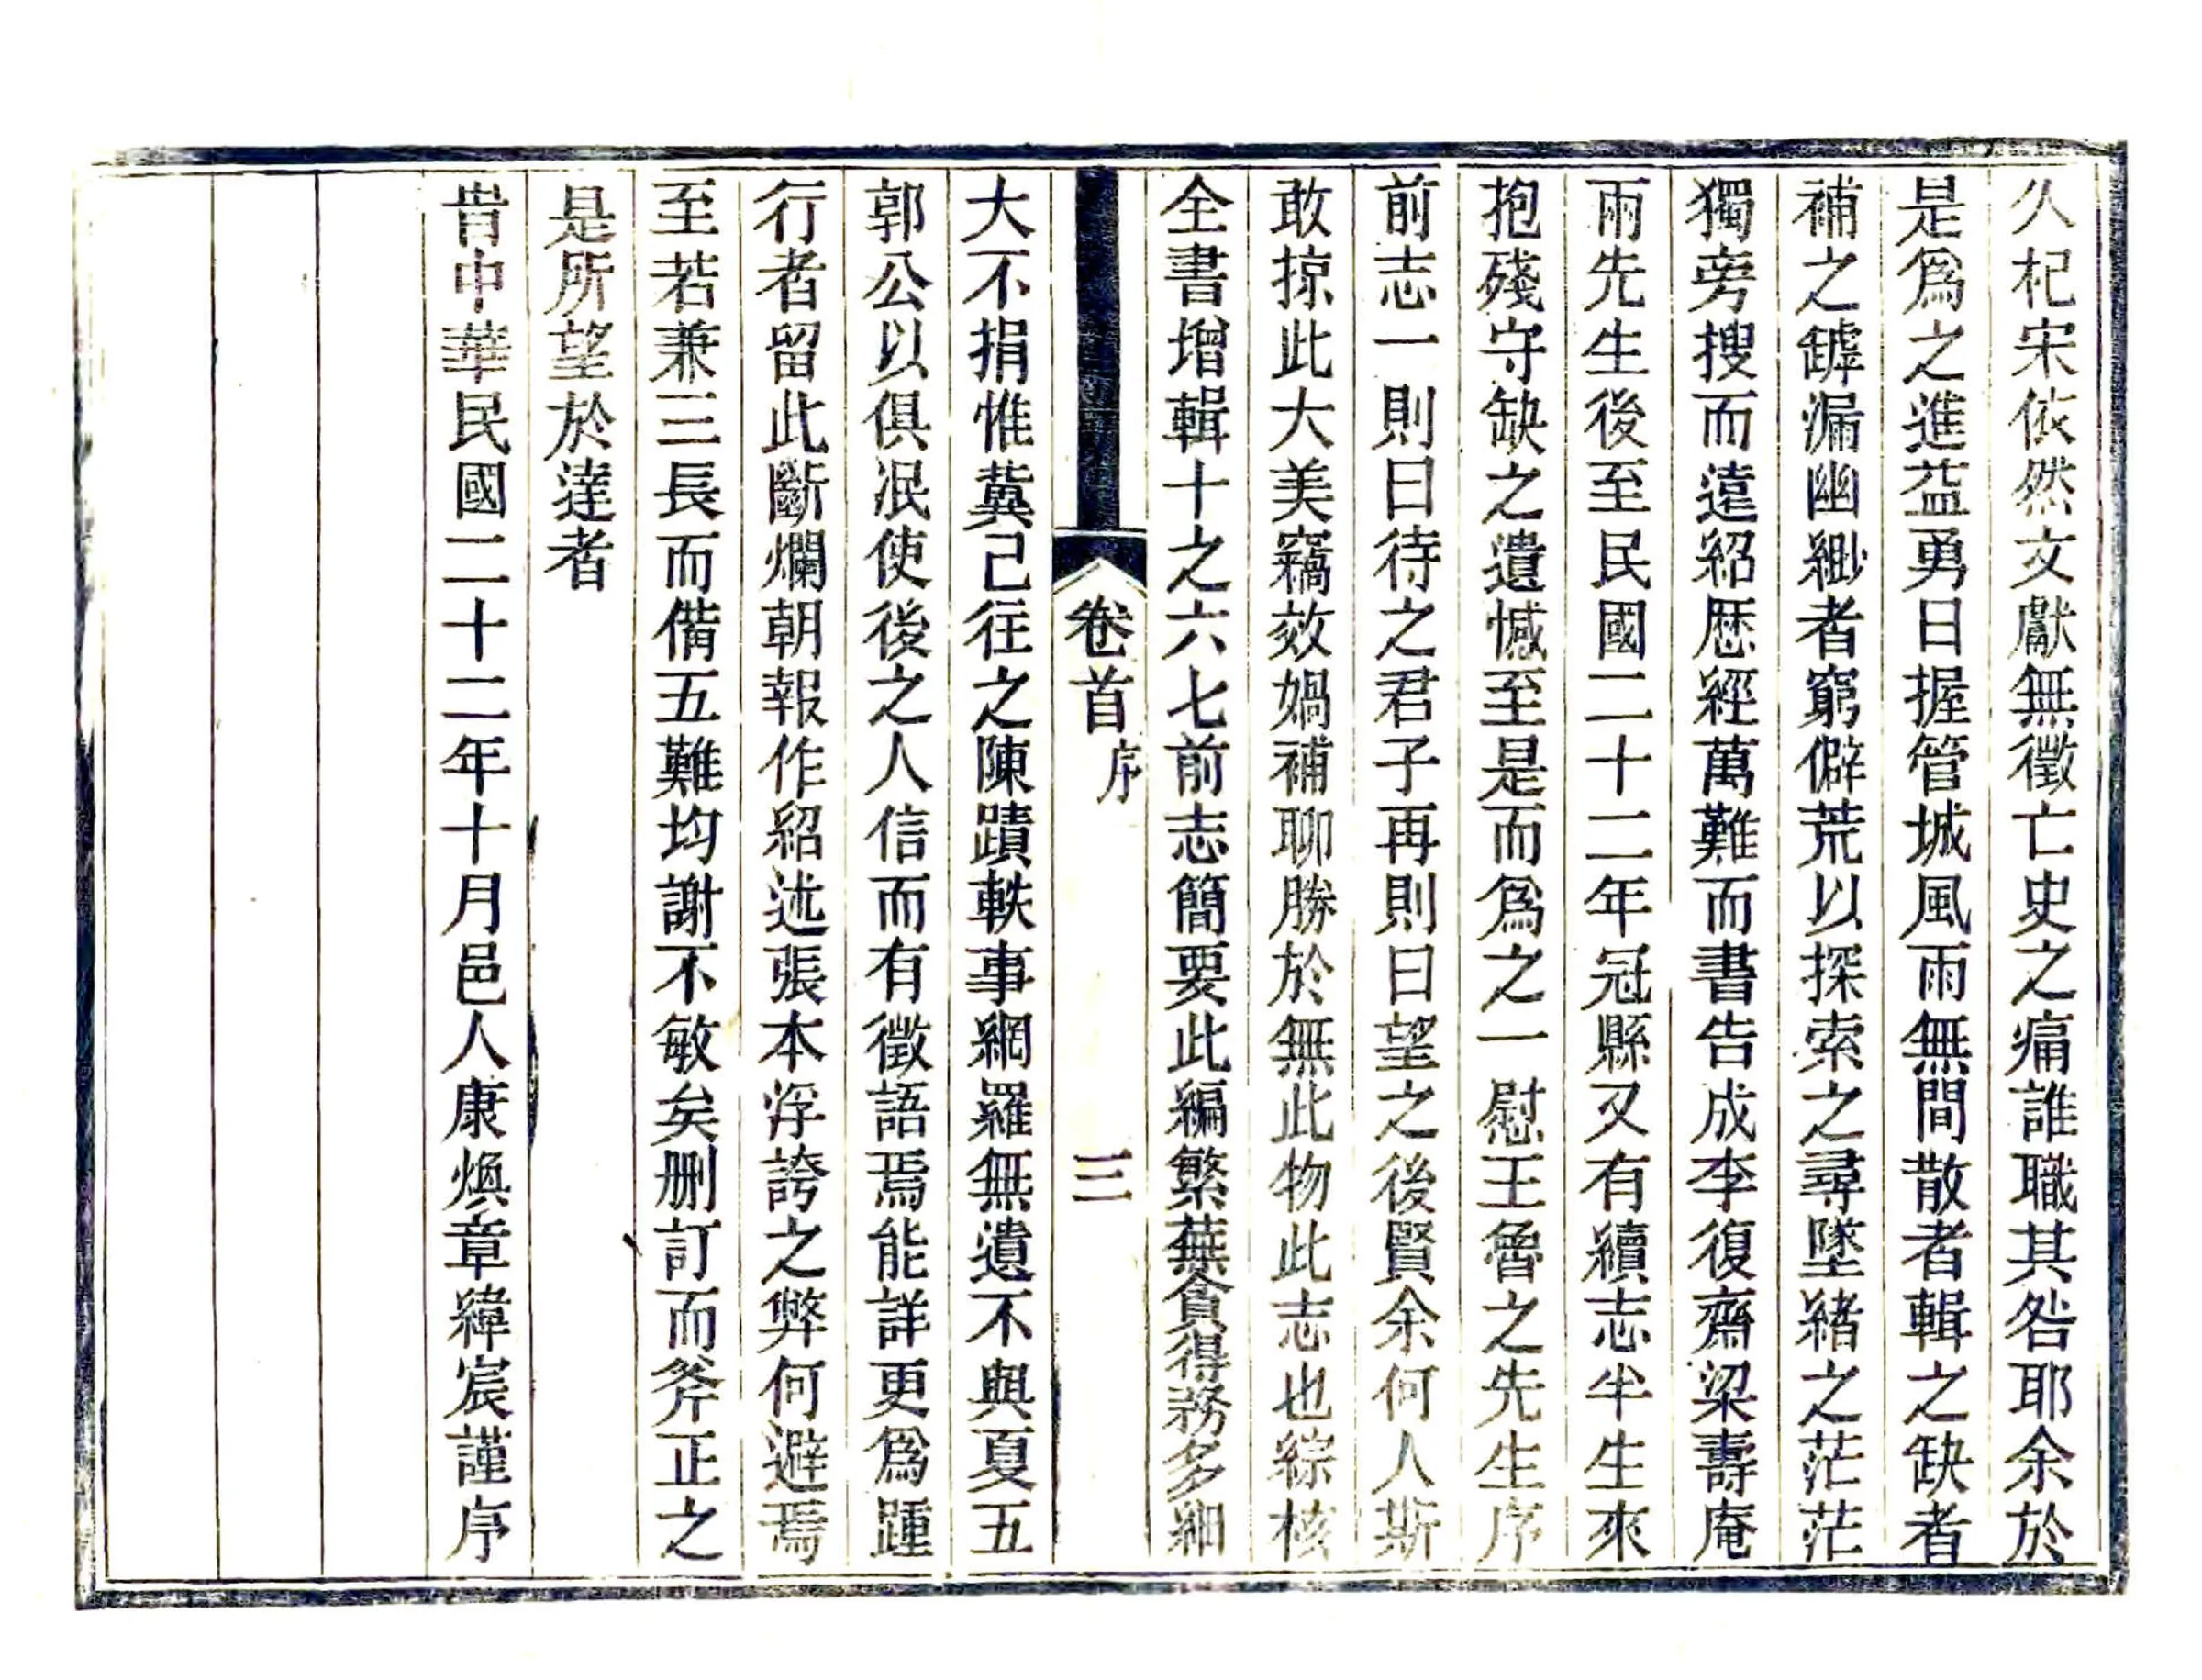 久杞宋依然文獻無徵亡史之痛誰職其咎耶余於
是爲之進益勇日握管城風雨無間散者輯之缺者
補之罅漏幽緲者窮僻荒以探索之尋墜緒之茫茫
獨旁搜而遠紹歷經萬難而書告成李復齋梁壽庵
兩先生後至民國二十二年冠縣又有續志半生來
抱殘守缺之遺憾至是而爲之一慰王魯之先生序
前志一則曰待之君子再則曰望之後賢余何人斯
敢掠此大美竊效媧補聊勝於無此物此志也綜核
全書增輯十之六七前志簡要此編繁蕪貪得務多細
卷首 序 三
大不捐惟冀已往之陳蹟軼事網羅無遺不與夏五
郭公以俱泯使後之人信而有徵語焉能詳更爲踵
行者留此斷爛朝報作紹述張本浮誇之弊何避焉
至若兼三長而備五難均謝不敏矣删訂而斧正之
是所望於達者
旹中華民國二十二年十月邑人康煥章緯宸謹序